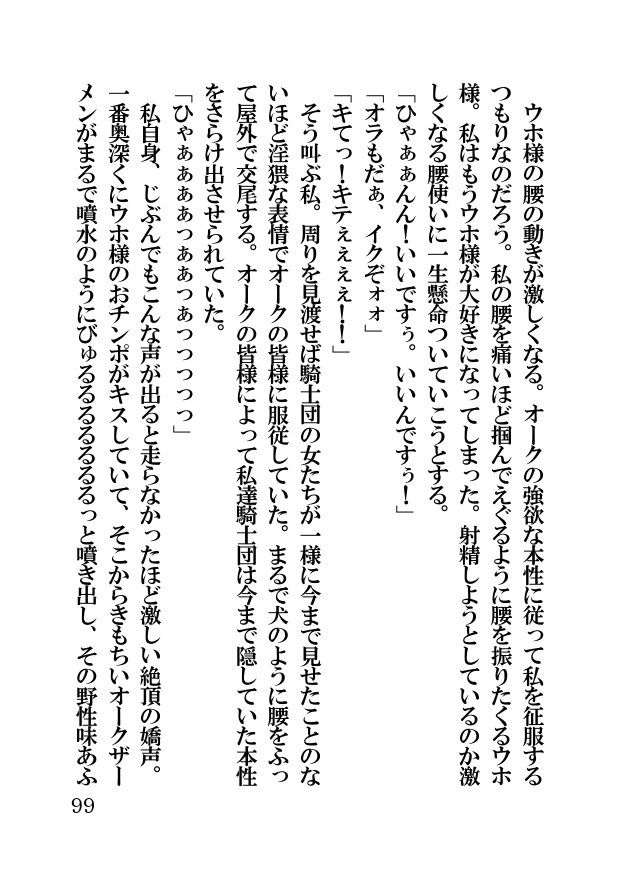 ウホ様の腰の動きが激しくなる。オークの強欲な本性に従って私を征服する
つもりなのだろう。私の腰を痛いほど掴んでえぐるように腰を振りたくるウホ
様。私はもうウホ様が大好きになってしまった。射精しようとしているのか激
しくなる腰使いに一生懸命ついていこうとする。
「ひゃぁぁんん！いいですぅ。いいんですぅ！」
「オラもだぁ、イクぞォォ」
「キてっ！キテぇぇぇぇ！！」
　そう叫ぶ私。周りを見渡せば騎士団の女たちが一様に今まで見せたことのな
いほど淫猥な表情でオークの皆様に服従していた。まるで犬のように腰をふっ
て屋外で交尾する。オークの皆様によって私達騎士団は今まで隠していた本性
をさらけ出させられていた。
「ひゃぁぁぁぁっぁぁっぁっっっっっ」
　私自身、じぶんでもこんな声が出ると走らなかったほど激しい絶頂の嬌声。
一番奥深くにウホ様のおチンポがキスしていて、そこからきもちいオークザー
メンがまるで噴水のようにびゅるるるるるるるっと噴き出し、その野性味あふ
99